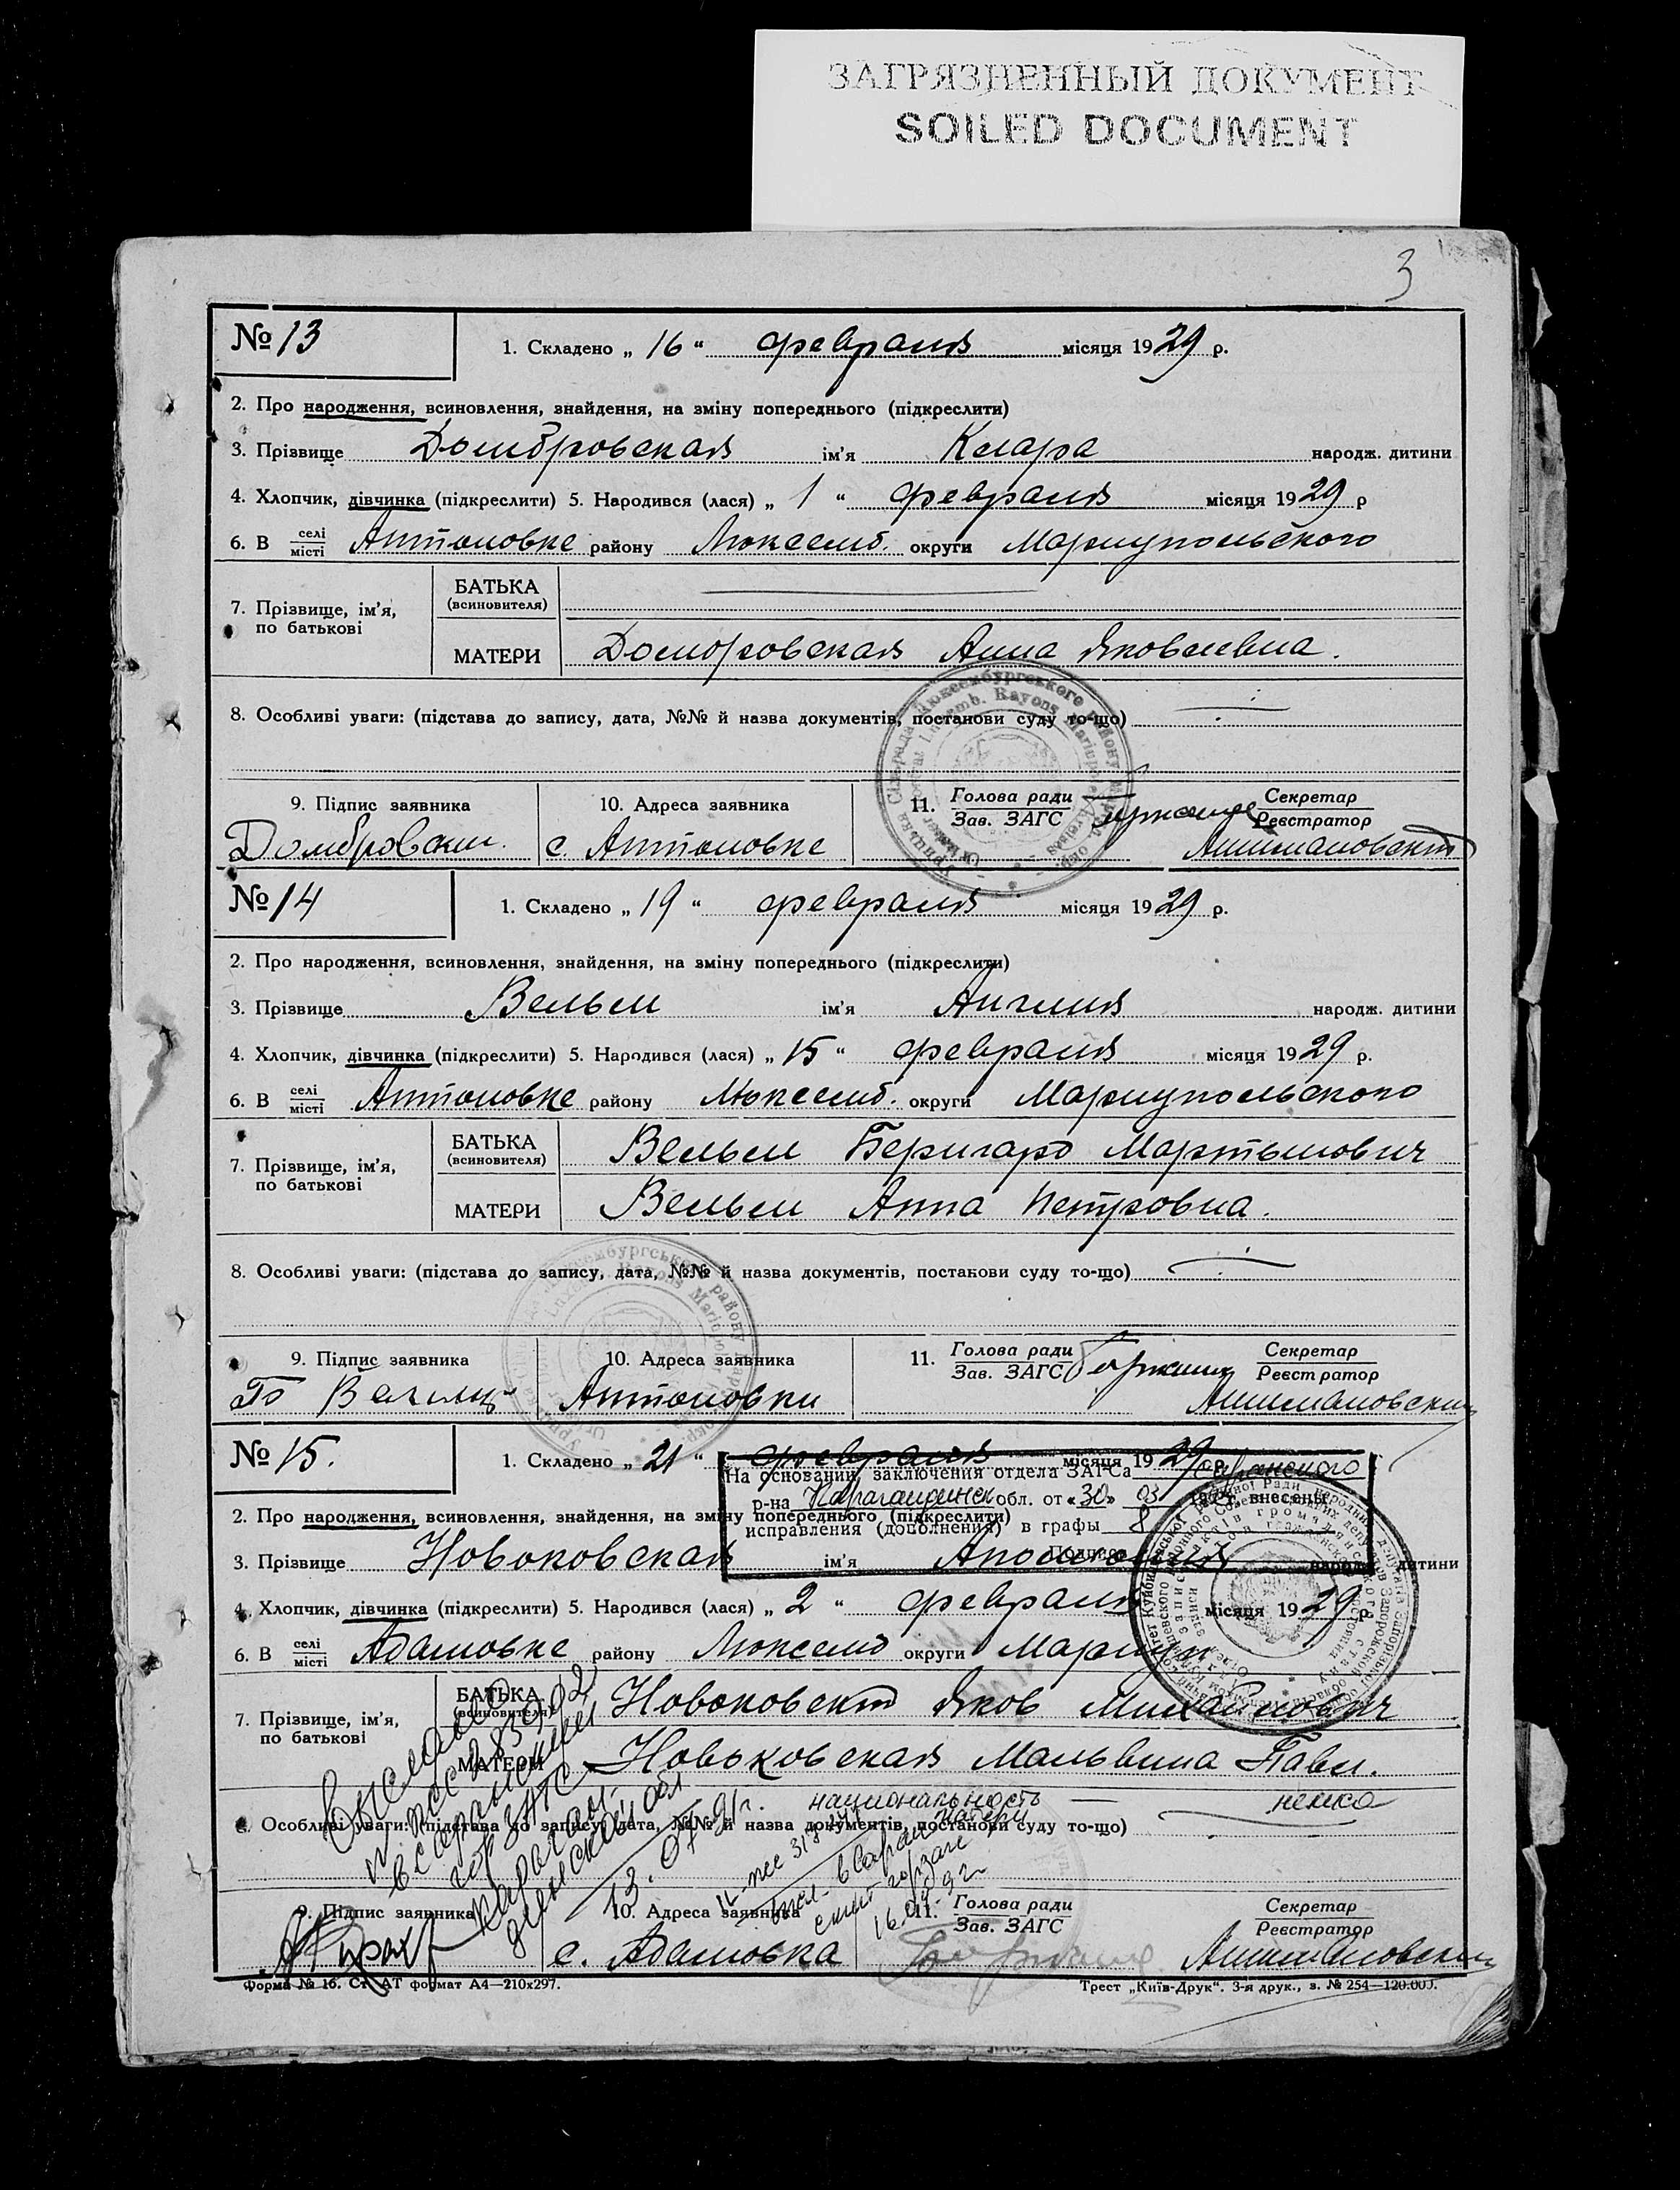 ЗАГРЯЗНЕННЫЙ ДОКУМЕНТ
SOILED DOCUMENT
3
№ 13
1. Складено „ 16 “ февраля місяця 1929 р.
2. Про народження, всиновлення, знайдення, на зміну попереднього (підкреслити)
3. Прізвище Домбровская ім'я Клара народж. дитини
4. Хлопчик, дівчинка (підкреслити) 5. Народився (лася) „ 1 “ февраля місяця 1929 р
6. В селі місті Антоновке району Люксемб. округи Мариупольского
7. Прізвище, ім'я, по батькові
БАТЬКА (всиновителя)
МАТЕРИ Домбровская Анна Яковлевна.
8. Особливі уваги: (підстава до запису, дата, №№ й назва документів, постанови суду то-що)
9. Підпис заявника
10. Адреса заявника
11. Голова ради Зав. ЗАГС
Секретар Реєстратор
Домбровский с. Антоновке
№ 14
1. Складено „ 19 “ февраля місяця 1929 р.
2. Про народження, всиновлення, знайдення, на зміну попереднього (підкреслити)
3. Прізвище Вельм ім'я народж. дитини
4. Хлопчик, дівчинка (підкреслити) 5. Народився (лася) „ 15 “ февраля місяця 1929 р.
6. В селі місті Антоновке району Люксемб. округи Мариупольского
7. Прізвище, ім'я, по батькові
БАТЬКА (всиновителя) Вельм Бернгард Мартынович
МАТЕРИ Вельм Анна Петровна.
8. Особливі уваги: (підстава до запису, дата, №№ й назва документів, постанови суду то-що)
9. Підпис заявника
10. Адреса заявника
11. Голова ради Зав. ЗАГС
Секретар Реєстратор
Антоновки
№ 15.
1. Складено „ 21 “ февраля місяця 1929 р.
На основании заключения отдела ЗАГСа Саранского
р-на Карагандинск обл. от «30» 03 внесены
исправления (дополнения) в графы 8
Подпись
2. Про народження, всиновлення, знайдення, на зміну попереднього (підкреслити)
3. Прізвище Новоковская ім'я Аполония народж. дитини
4. Хлопчик, дівчинка (підкреслити) 5. Народився (лася) „ 2 “ февраля місяця 1929 р
6. В селі місті Адамовке району Люксемб округи Мариуп
7. Прізвище, ім'я, по батькові
БАТЬКА (всиновителя) Новоковский Яков Михайлович
МАТЕРИ Новоковская Мальвина Павл.
национальность матери — немка
8. Особливі уваги: (підстава до запису, дата, №№ й назва документів, постанови суду то-що)
13.07.91г.
9. Підпис заявника
10. Адреса заявника
11. Голова ради Зав. ЗАГС
Секретар Реєстратор
с. Адамовка
Форма № 16. Ст. АТ формат А4—210х297.
Трест „Київ-Друк“. 3-я друк., з. № 254—120.000.